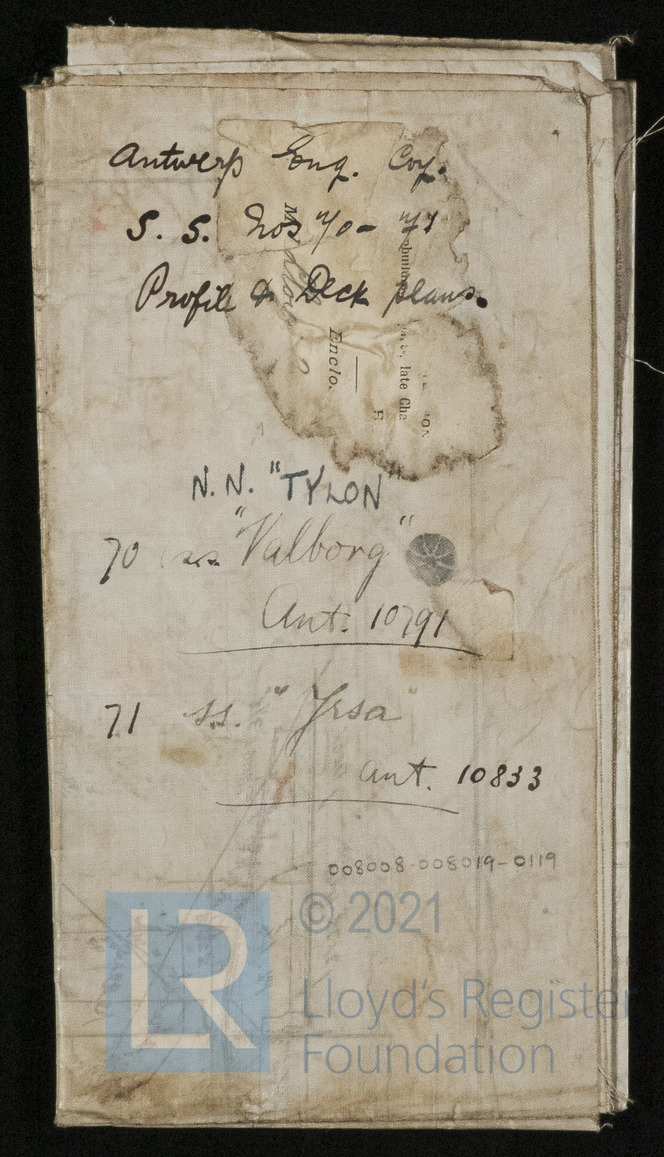 Antwerp Eng. Coy.
S. S. Nos 70 - 71
Profile & Deck plans.
Enclo.
late Cha
N.N. "TYLON"
70 ss "Valborg"
Ant. 10791
71 ss. "Yrsa"
Ant. 10833
008008-008019-0119
LR
© 2021
Lloyd's Register
Foundation